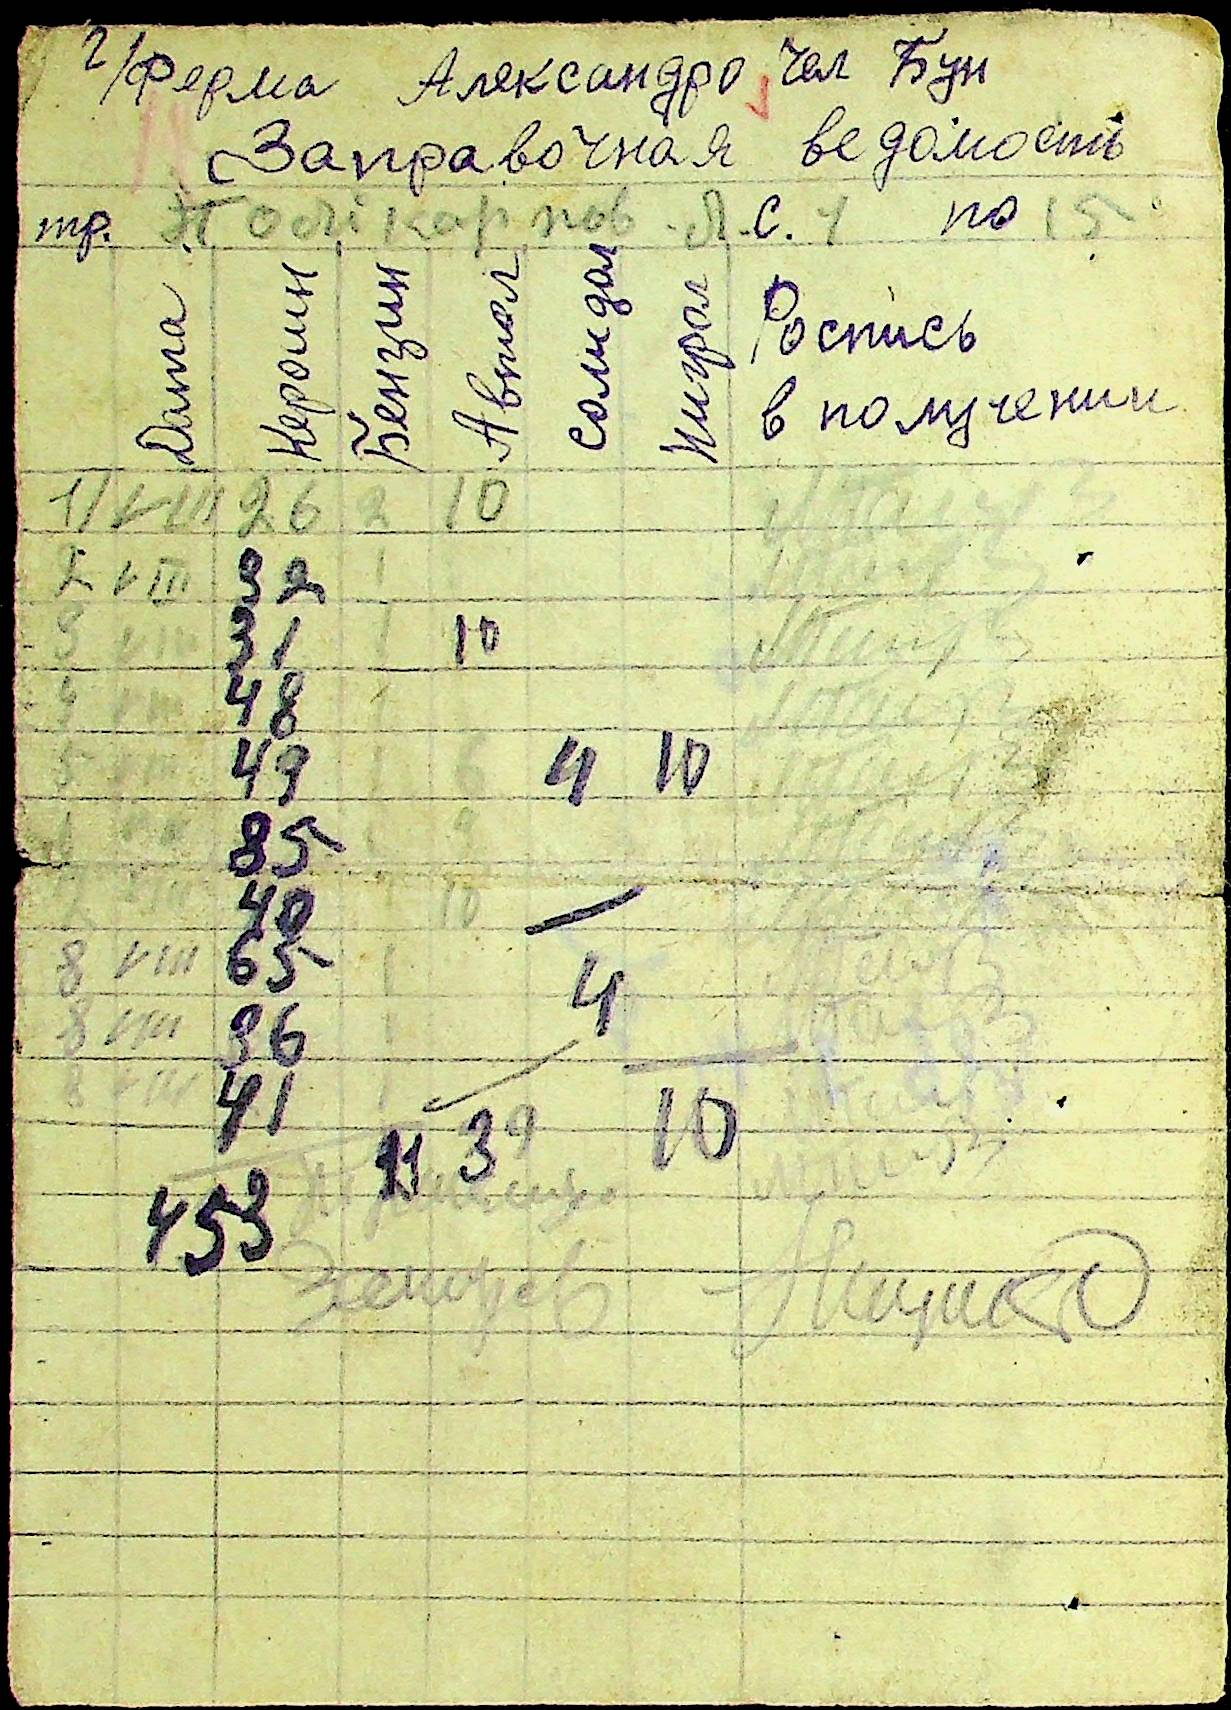 2/Ферма Александро Чел Бун
Заправочная ведомость
тр. Поликарпов Л. с. 1 по 15
Дата Керосин Бензин Автол Солидол Нигрол Роспись
в получении
1/VIII 26 2 10
2 VIII 32 1
3 VIII 31 1 10
4 VIII 48 1
5 VIII 49 1 6 4 10
85 9
40 1 10
8 VIII 65 1 4
8 VIII 36 1
8 VIII 41 1
11 39 10
453